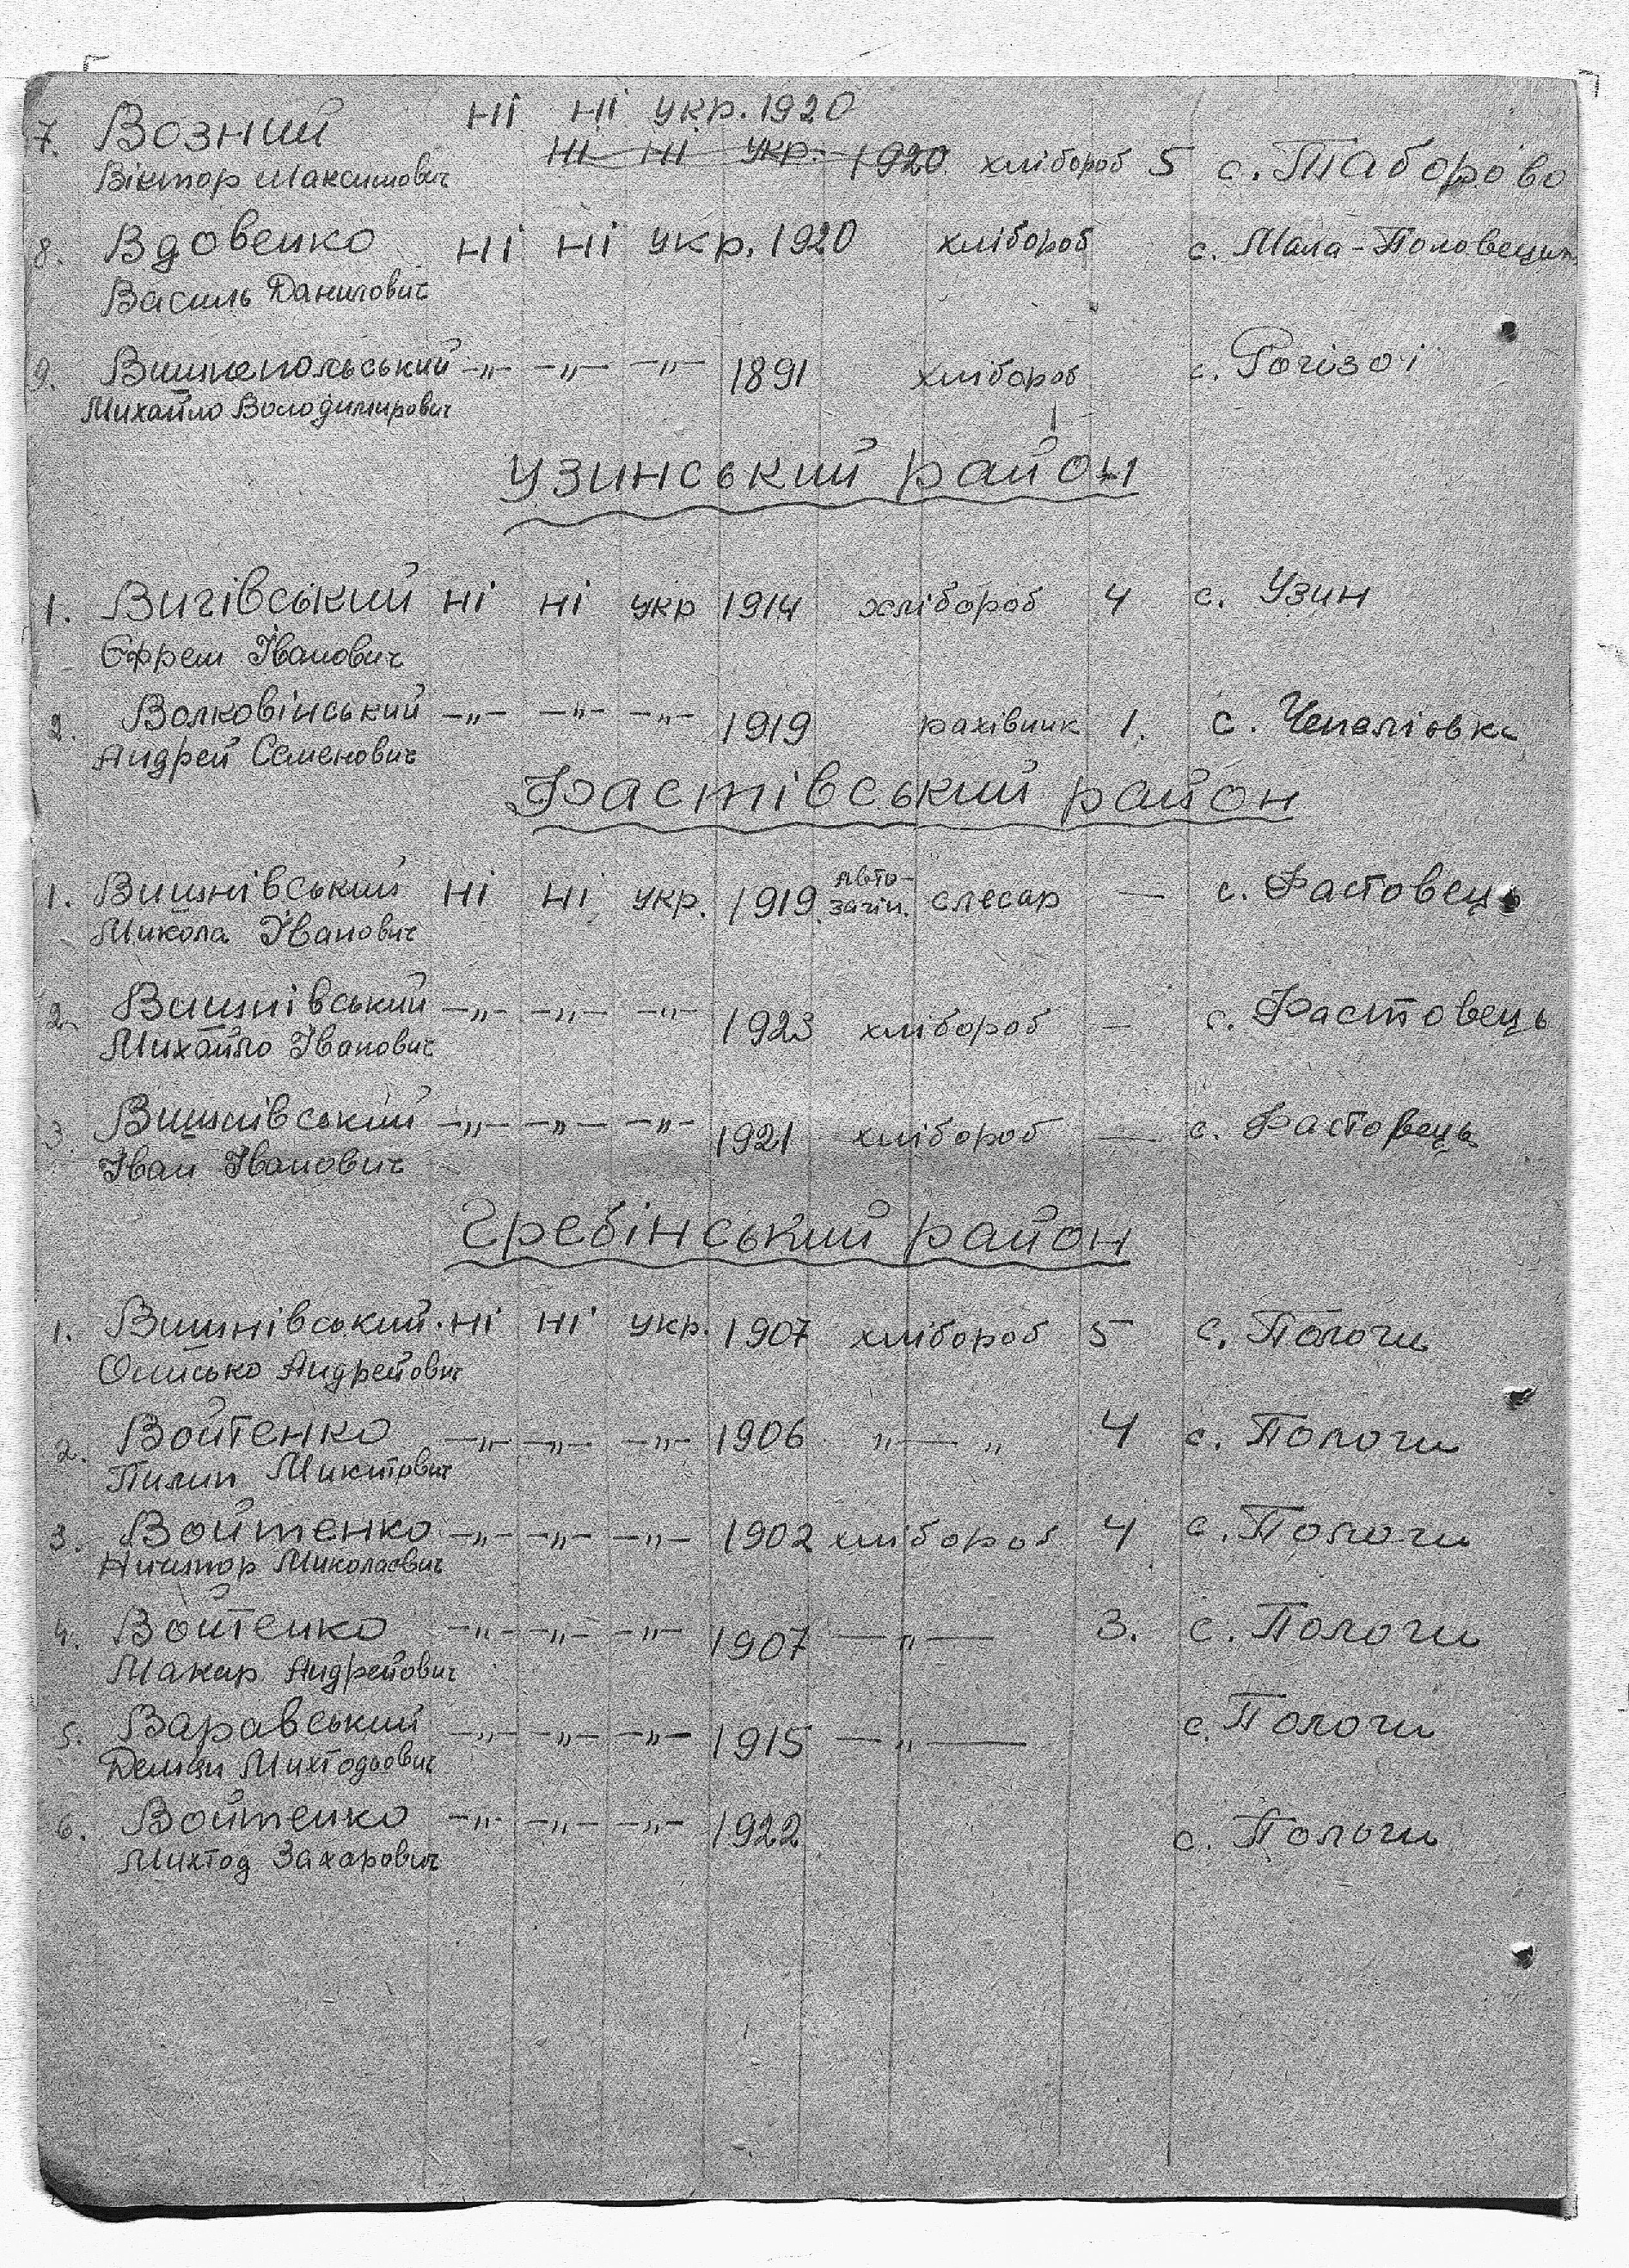 7. Возний ні ні укр. 1920
ні ні укр. 1920 хлібороб 5 с. Таборово
Віктор Максимович
8. Вдовенко ні ні укр. 1920 хлібороб с. Мала-Половецьк
Василь Данилович
9. Вишнепольський -„- -„- -„- 1891 хлібороб с.
Михайло Володимирович
Узинський район
1. Вигівський ні ні укр 1914 хлібороб 4 с. Узин
Єфрем Іванович
2. Волковінський -„- -„- -„- 1919 рахівник 1. с. Чепеліовка
Андрей Семенович
Фастівський район
1. Вишнівський ні ні укр. 1919 авто-загін. слесар — с. Фастовець
Микола Іванович
2. Вишнівський -„- -„- -„- 1923 хлібороб - с. Фастовець
Михайло Іванович
3. Вишнівський -„- -„- -„- 1921 хлібороб — с. Фастовець
Іван Іванович
Гребінський район
1. Вишнівський. ні ні укр. 1907 хлібороб 5 с. Пологи
Онисько Андрейович
2. Войтенко -„- -„- -„- 1906 „—„ 4 с. Пологи
Пилип Микитович
3. Войтенко -„- -„- -„- 1902 хлібороб 4 с. Пологи
Ничипор Миколаович
4. Войтенко -„- -„- -„- 1907 —„— 3. с. Пологи
Макар Андрейович
5. Варавський -„- -„- -„- 1915 —„— с. Пологи
Демян Михтодьович
6. Войтенко -„- -„- -„- 1922 с. Пологи
Михтод Захарович